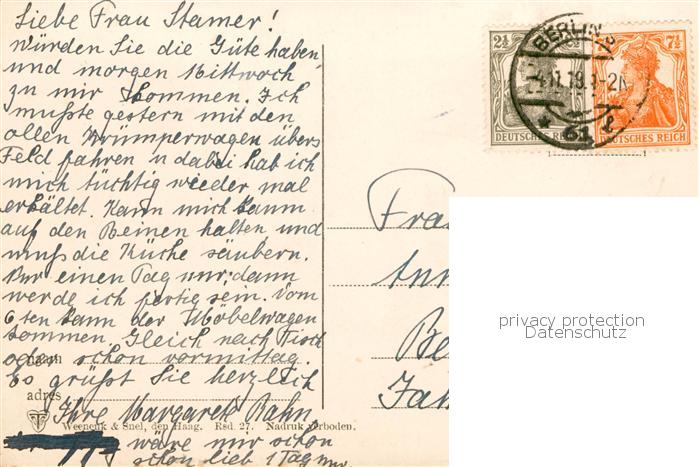 Liebe Frau Stamer!
Würden Sie die Güte haben
und morgen Mittwoch
zu mir kommen. Ich
mußte gestern mit den
ollen Krümperwagen übers
Feld fahren u dabei hab ich
mich tüchtig wieder mal
erkältet. Kann mich kaum
auf den Beinen halten und
muß die Küche säubern.
Nur einen Tag nur, dann
werde ich fertig sein. Vom
6ten kann der Möbelwagen
kommen. Gleich nach Tisch
oder schon vormittag.
Es grüßt Sie herzlich
Ihre Margarete Bahn
wäre mir schon
schon lieb 1 Tag nur
naam
adres
Weenenk & Snel, den Haag. Rsd. 27. Nadruk verboden.
2½
7½
BERLIN
61
DEUTSCHES REICH
DEUTSCHES REICH
Frau
privacy protection
Datenschutz